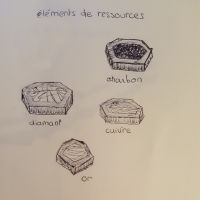 éléments de ressources
charbon
diamant
cuivre
or